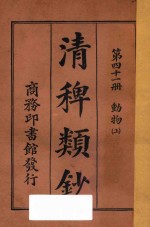 第四十一冊 動物(上)
清稗類鈔
商務印書館發行